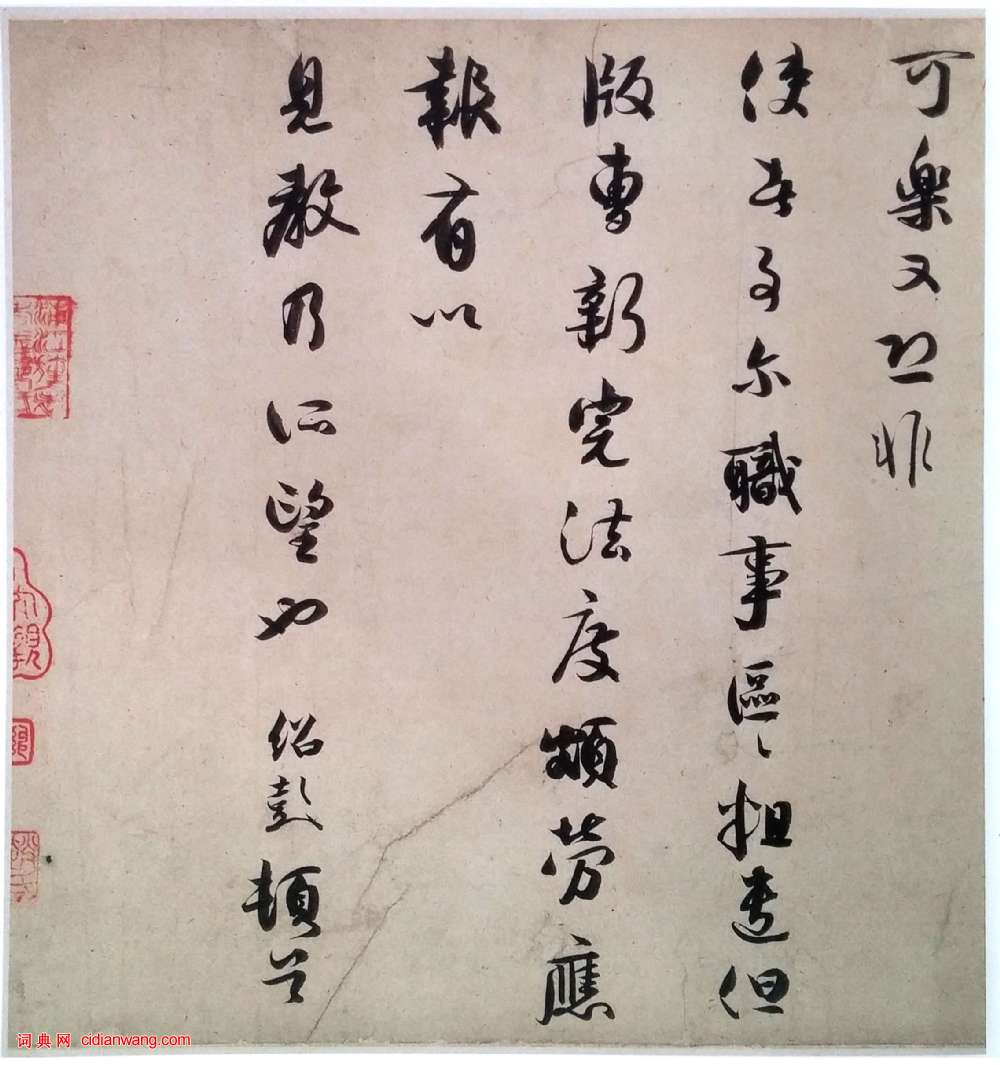 可樂又恐非
使者事尔職事區〻粗遣但
版曹新完法度頗勞應
報有以
見教乃所望也 紹彭頓首
词典网 cidianwang.com